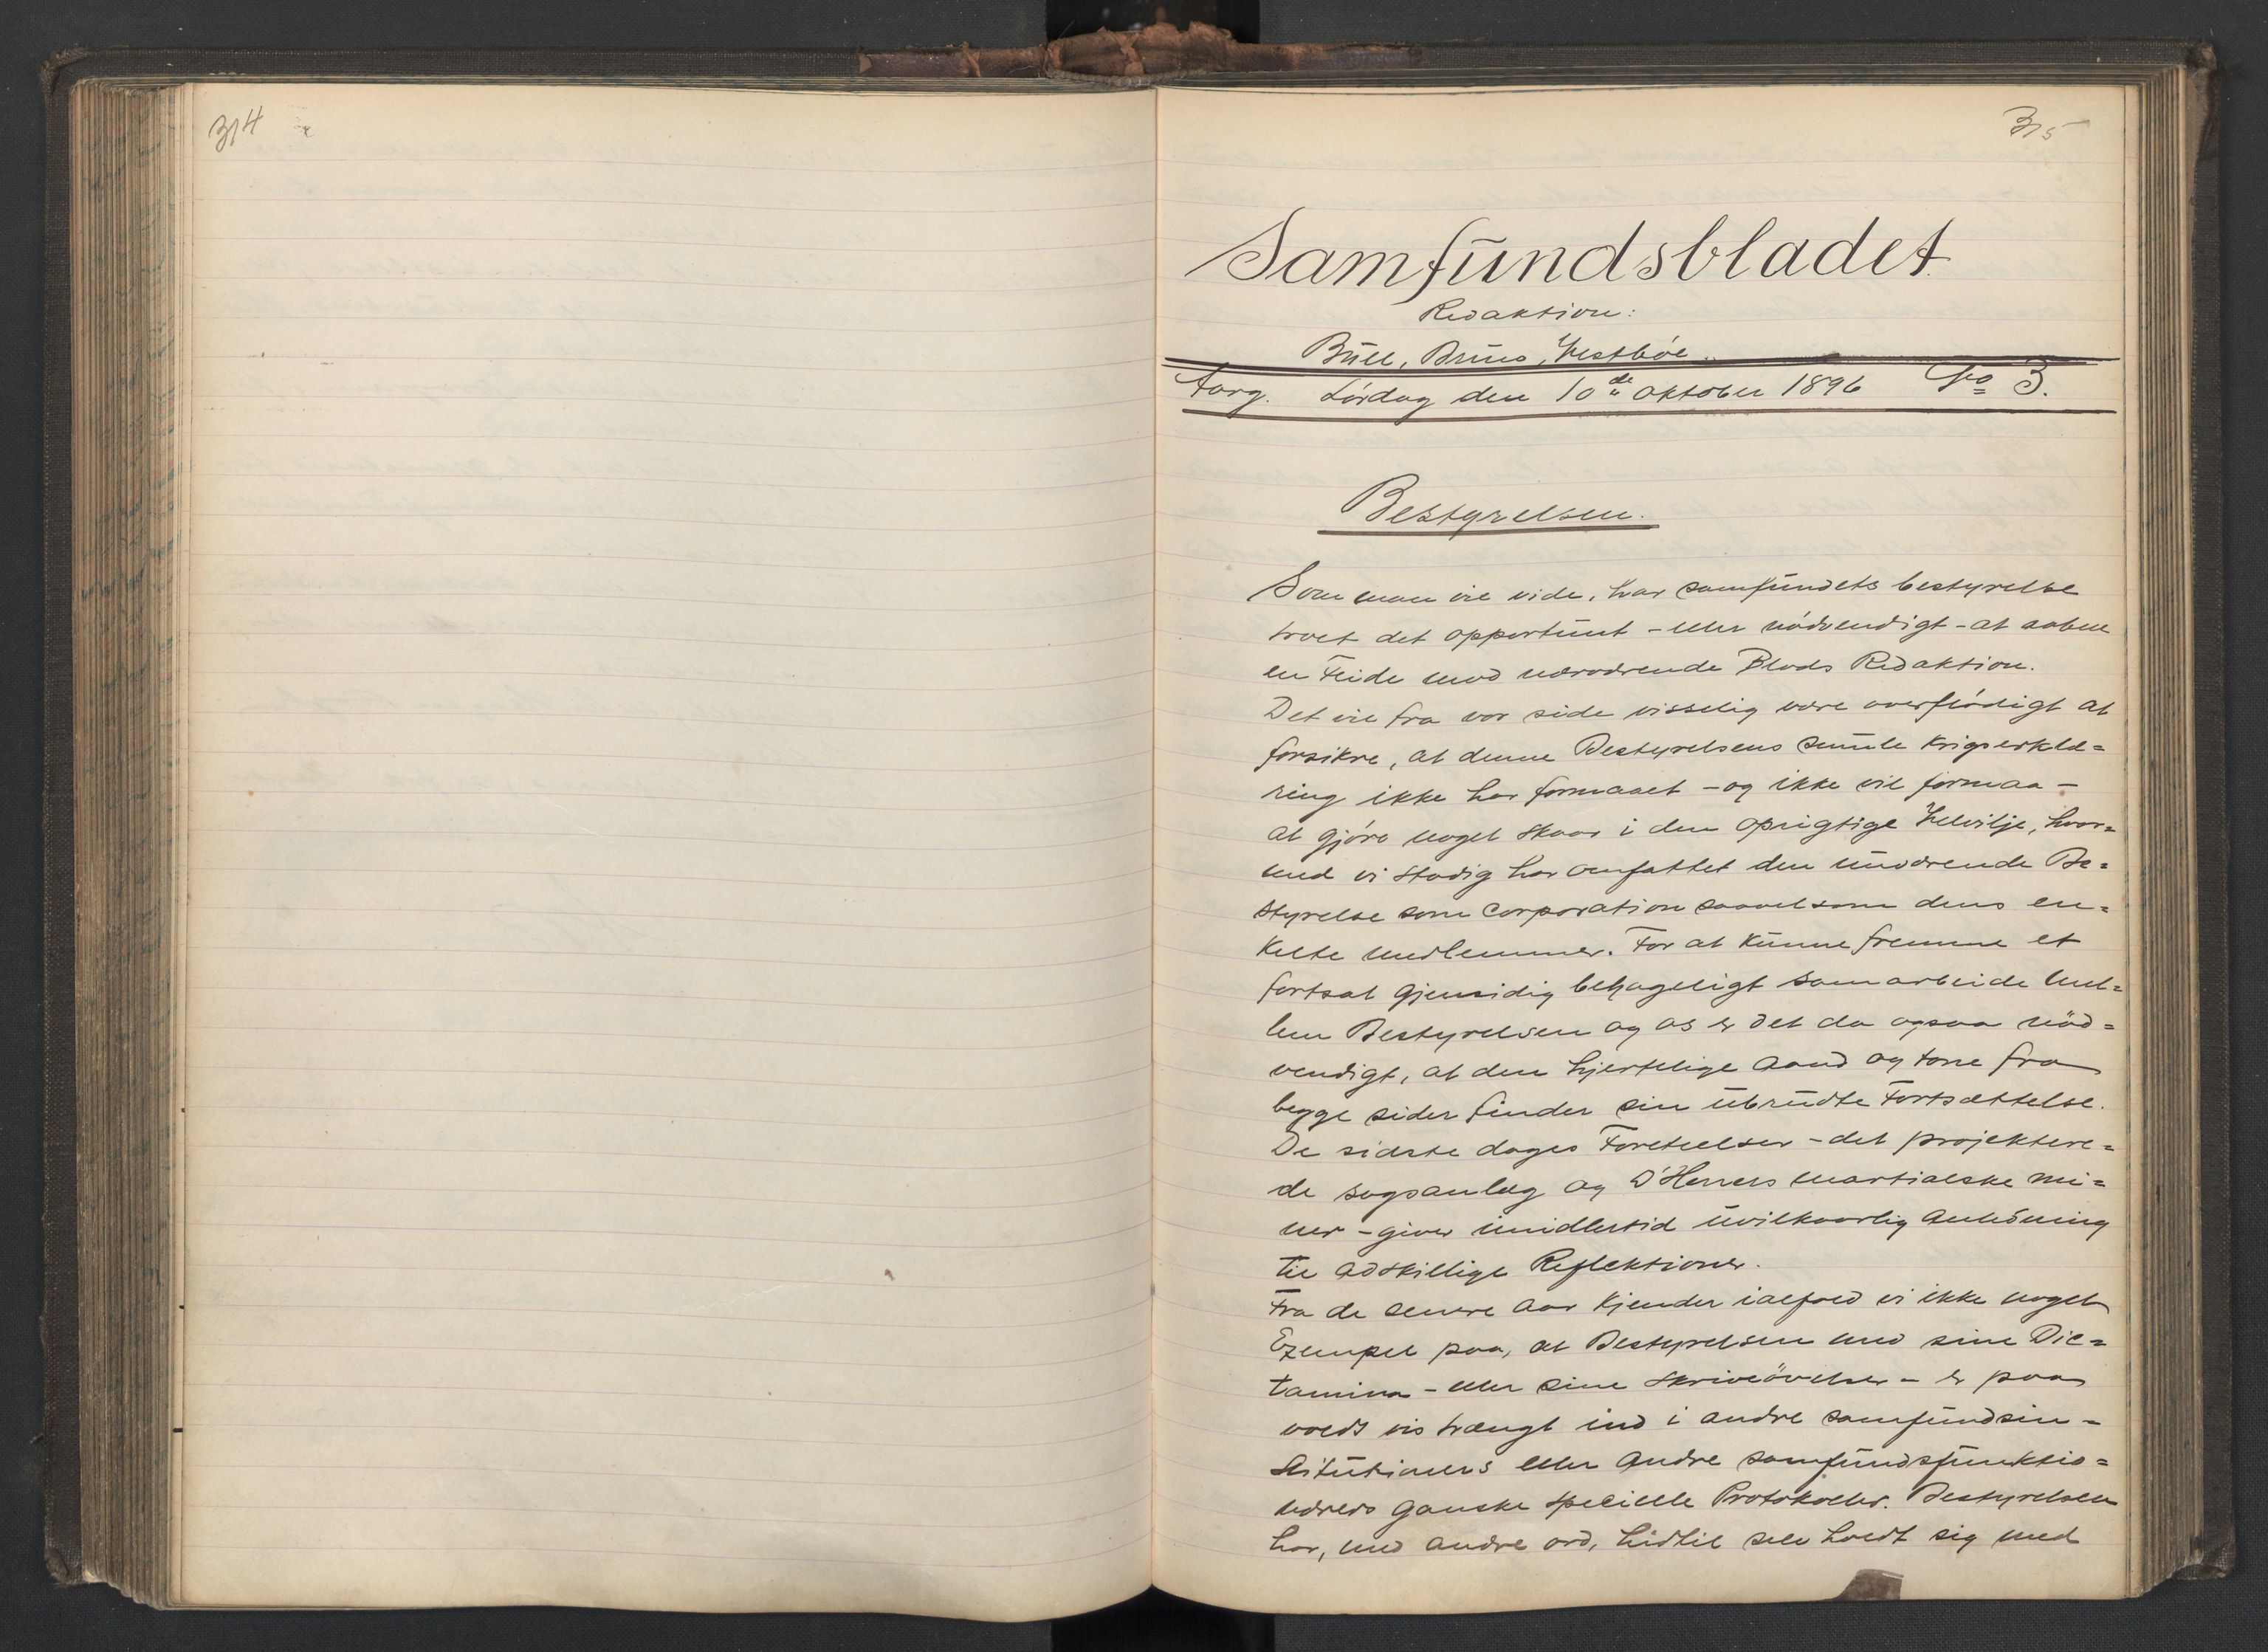 314
315
Samfundsbladet
Redaktion:
Bull, Bruus, Vestbøe.
Aarg. Lørdag den 10de Oktober 1896 No 3.
Bestyrelsen.
Som man vil vide, har samfundets bestyrelse
troet det opportunt - eller nødvendigt - at aabne
en Feide mod nærværende Blads Redaktion.
Det vil fra vor side visselig være overflødigt at
forsikre, at denne Bestyrelsens krigserklæ=
ring ikke har formaaet - og ikke vil formaa -
at gjøre noget skaar i den oprigtige Velvilje, hvor=
med vi stadig har omfattet den nuværende Be=
styrelse som corporation saavelsom dens en=
kelte medlemmer. For at kunne fremme et
fortsat gjensidig behageligt samarbeide mel=
lem Bestyrelsen og os er det da ogsaa nød=
vendigt, at den hjertelige Aand og tone fra
begge sider finder sin ubrudte Fortsættelse.
De sidste dages Foreteelser - det projektere=
de sagsanlæg og D'Herrers martialske mi=
ner - giver imidlertid uvilkaarlig Anledning
til adskillige Reflektioner.
Fra de senere Aar kjender ialfald vi ikke noget
Exempel paa, at Bestyrelsen med sine Dic=
tamina - eller sine skriveøvelser - er paa
voldt vis trængt ind i andre samfundsin-
stitutioners eller andre samfundsfunktio=
nærers ganske specielle Protokoller. Bestyrelsen
har, med andre ord, hidtil selv holdt sig med